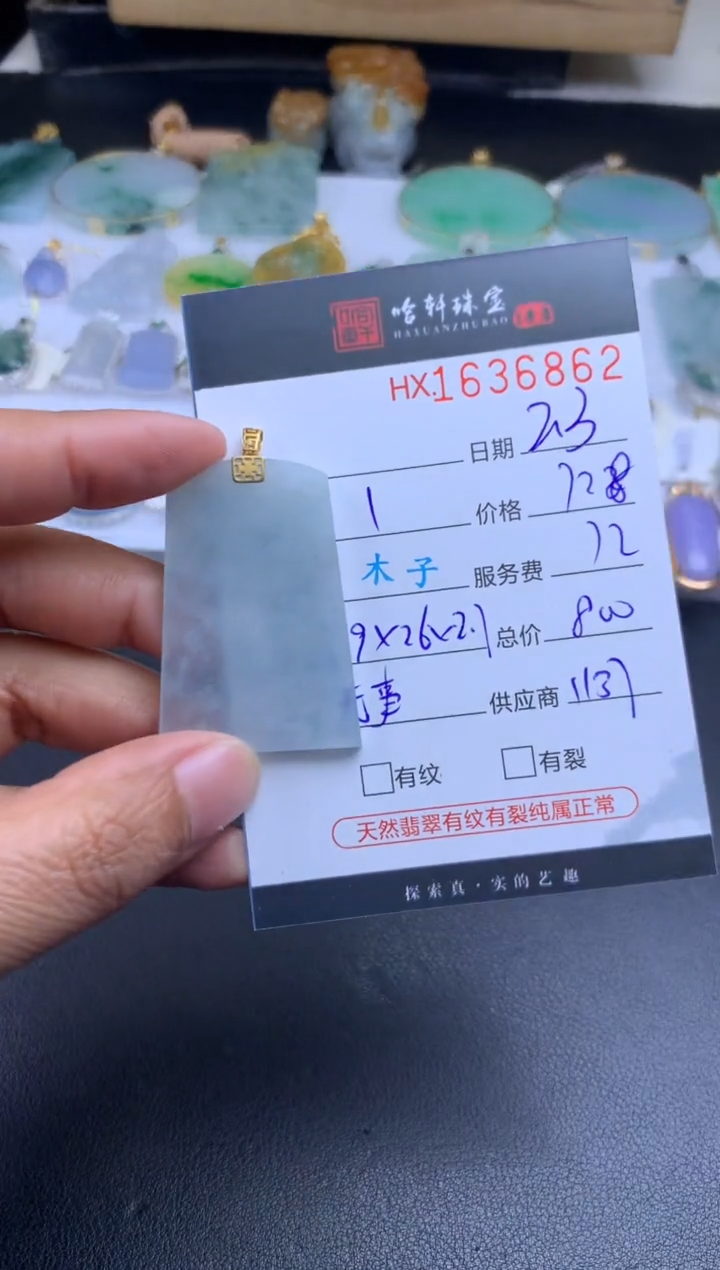 哈轩珠宝
HAXUANZHUBAO
HX.1636862
日期 2.3
1 价格 728
木子 服务费 72
9×26×2.1 总价 800
事 供应商 1137
有纹 有裂
天然翡翠有纹有裂纯属正常
探索真·实的艺趣